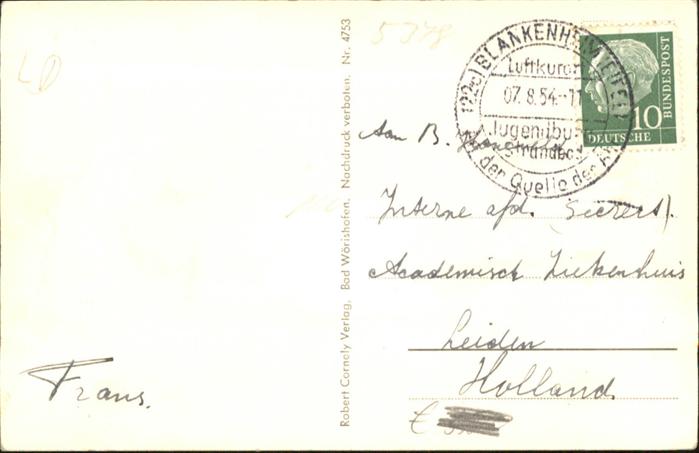 5378
Frans.
Robert Cornely Verlag, Bad Wörishofen. Nachdruck verboten. Nr. 4753
(22c) BLANKENHEIM (EIFEL)
Luftkurort
07.8.54.-11
Jugendburg
Strandbad
An der Quelle der Ahr
10
DEUTSCHE
BUNDESPOST
Aan B.
Interne afd. (Secret).
Academisch Ziekenhuis
Leiden
Holland